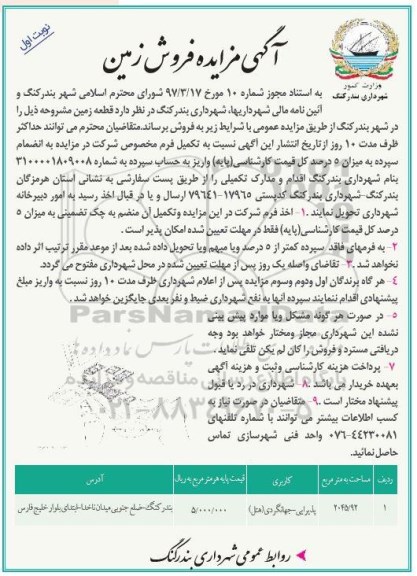 نوبت اول
آگهی مزایده فروش زمین
وزارت کشور
شهرداری بندر کنگ
به استناد مجوز شماره ۱۰ مورخ ۹۷/۳/۱۷ شورای محترم اسلامی شهر بندرکنگ و
آئین نامه مالی شهرداریها، شهرداری بندرکنگ در نظر دارد قطعه زمین مشروحه ذیل را
در شهر بندرکنگ از طریق مزایده عمومی با شرایط زیر به فروش برساند.متقاضیان محترم می توانند حداکثر
ظرف مدت ۱۰ روز از تاریخ انتشار این آگهی نسبت به تکمیل فرم مخصوص شرکت در مزایده به انضمام
سپرده به میزان ۵ درصد کل قیمت کارشناسی(پایه) واریز به حساب سپرده به شماره ۳۱۰۰۰۰۱۸۰۹۰۰۸
بنام شهرداری بندرکنگ اقدام و مدارک تکمیلی را از طریق پست سفارشی به نشانی استان هرمزگان
بندرکنگ-شهرداری بندرکنگ کدپستی ۱۷۹۶۵-۷۹۶۴۱ ارسال و یا در قبال اخذ رسید به امور دبیرخانه
شهرداری تحویل نمایند .۱- اخذ فرم شرکت در این مزایده وتکمیل آن منضم به چک تضمینی به میزان ۵
درصد کل قیمت کارشناسی(پایه) فقط در مهلت تعیین شده امکان پذیر است .
۲- به فرمهای فاقد سپرده کمتر از ۵ درصد ویا مبهم ویا تحویل داده شده بعد از موعد مقرر ترتیب اثر داده
نخواهد شد .۳- تقاضای واصله یک روز پس از مهلت تعیین شده در محل شهرداری مفتوح می گردد.
۴- هر گاه برندگان اول ودوم وسوم مزایده پس از اعلام شهرداری ظرف مدت ۱۰ روز نسبت به واریز مبلغ
پیشنهادی اقدام ننمایند سپرده آنها به نفع شهرداری ضبط و نفر بعدی جایگزین خواهد شد .
۵- در صورت هر گونه مشکل ویا موارد پیش بینی
نشده این شهرداری مجاز ومختار خواهد بود وجه
دریافتی مسترد و فروش را کان لم یکن تلقی نماید .
۷- پرداخت هزینه کارشناسی وثبت و هزینه آگهی
بعهده خریدار می باشد .۸- شهرداری در رد یا قبول
پیشنهاد مختار است .۹- متقاضیان در صورت نیاز به
کسب اطلاعات بیشتر می توانند با شماره تلفنهای
۰۷۶-۴۴۲۳۰۰۸۱ واحد فنی شهرسازی تماس
حاصل نمائید.
ParsNamadData
پارس نماد داده ها
۰۲۱-۸۸۳۴۹۶۷۰-۵
ردیف مساحت به متر مربع کاربری قیمت پایه هر متر مربع به ریال آدرس
۱ ۲۰۴۵/۹۲ پذیرایی-جهانگردی(هتل) ۵/۰۰۰/۰۰۰ بندر کنگ-ضلع جنوبی میدان ناخدا-ابتدای بلوار خلیج فارس
روابط عمومی شهرداری بندرکنگ